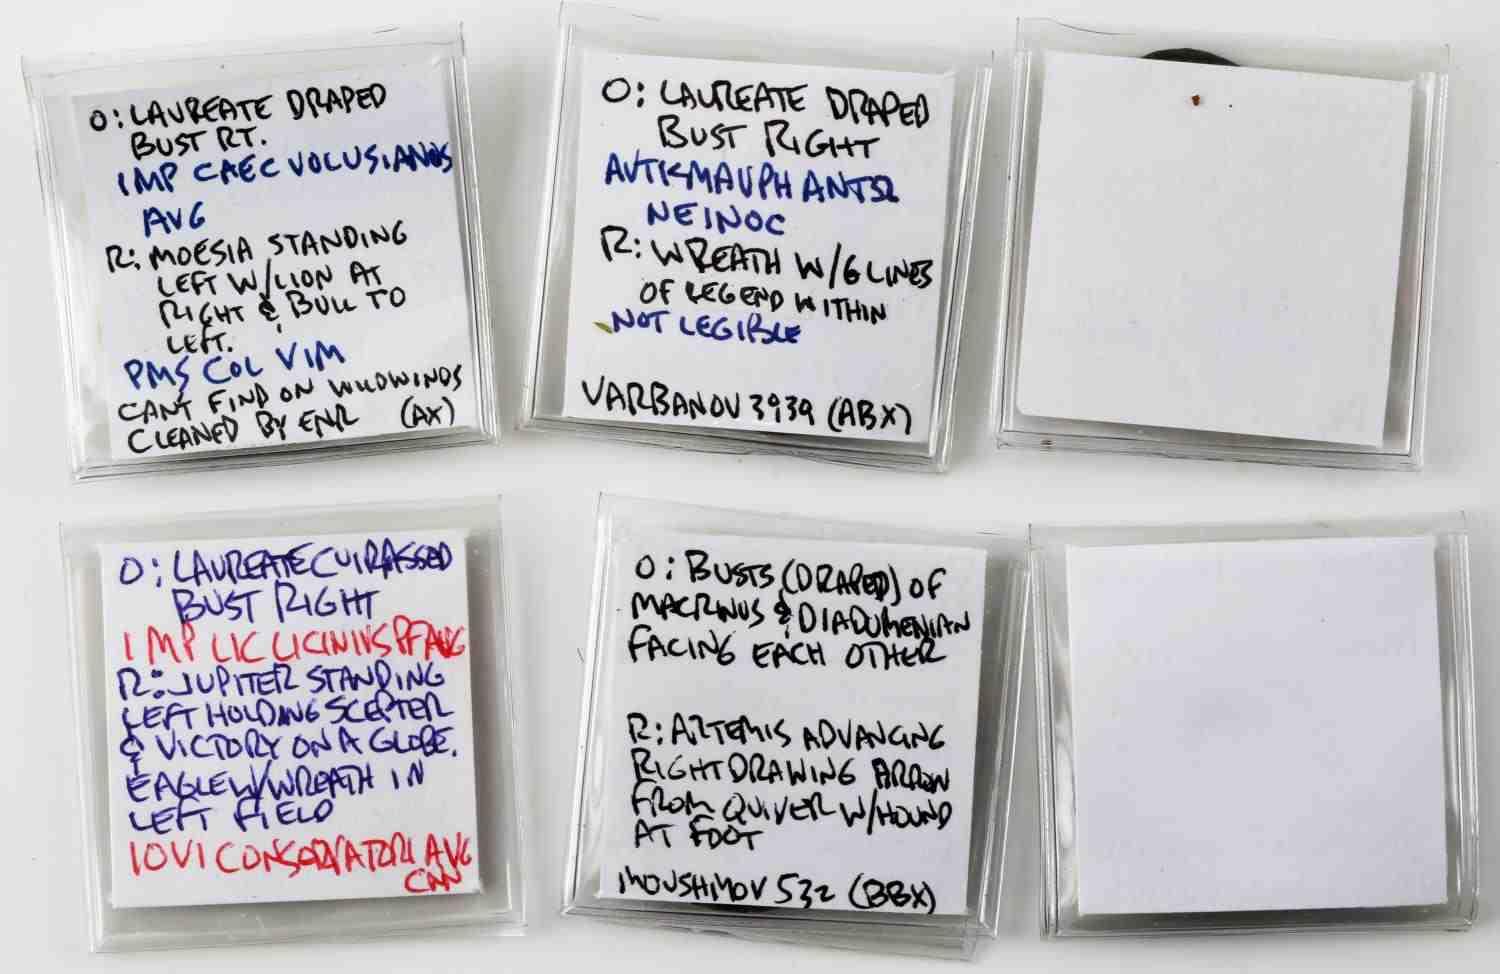 O: LAUREATE DRAPED
BUST RT.
IMP CAEC VOLUSIANOS
AVG
R: MOESIA STANDING
LEFT W/LION AT
RIGHT & BULL TO
LEFT.
PMS COL VIM
CANT FIND ON WILDWINDS
CLEANED BY ENR (AX)
O: LAUREATE DRAPED
BUST RIGHT
AVTKMAVPH ANTΩ
NEINOC
R: WREATH W/6 LINES
OF LEGEND WITHIN
NOT LEGIBLE
VARBANOV 3939 (ABX)
O: LAUREATE CUIRASSED
BUST RIGHT
IMP LIC LICINIVS PF AVG
R: JUPITER STANDING
LEFT HOLDING SCEPTER
& VICTORY ON A GLOBE.
EAGLE W/WREATH IN
LEFT FIELD
IOVI CONSERVATORI AVG
O: BUSTS (DRAPED) OF
MACRINUS & DIADUMENIAN
FACING EACH OTHER
R: ARTEMIS ADVANCING
RIGHT DRAWING ARROW
FROM QUIVER W/HOUND
AT FOOT
MOUSHMOV 532 (BBX)